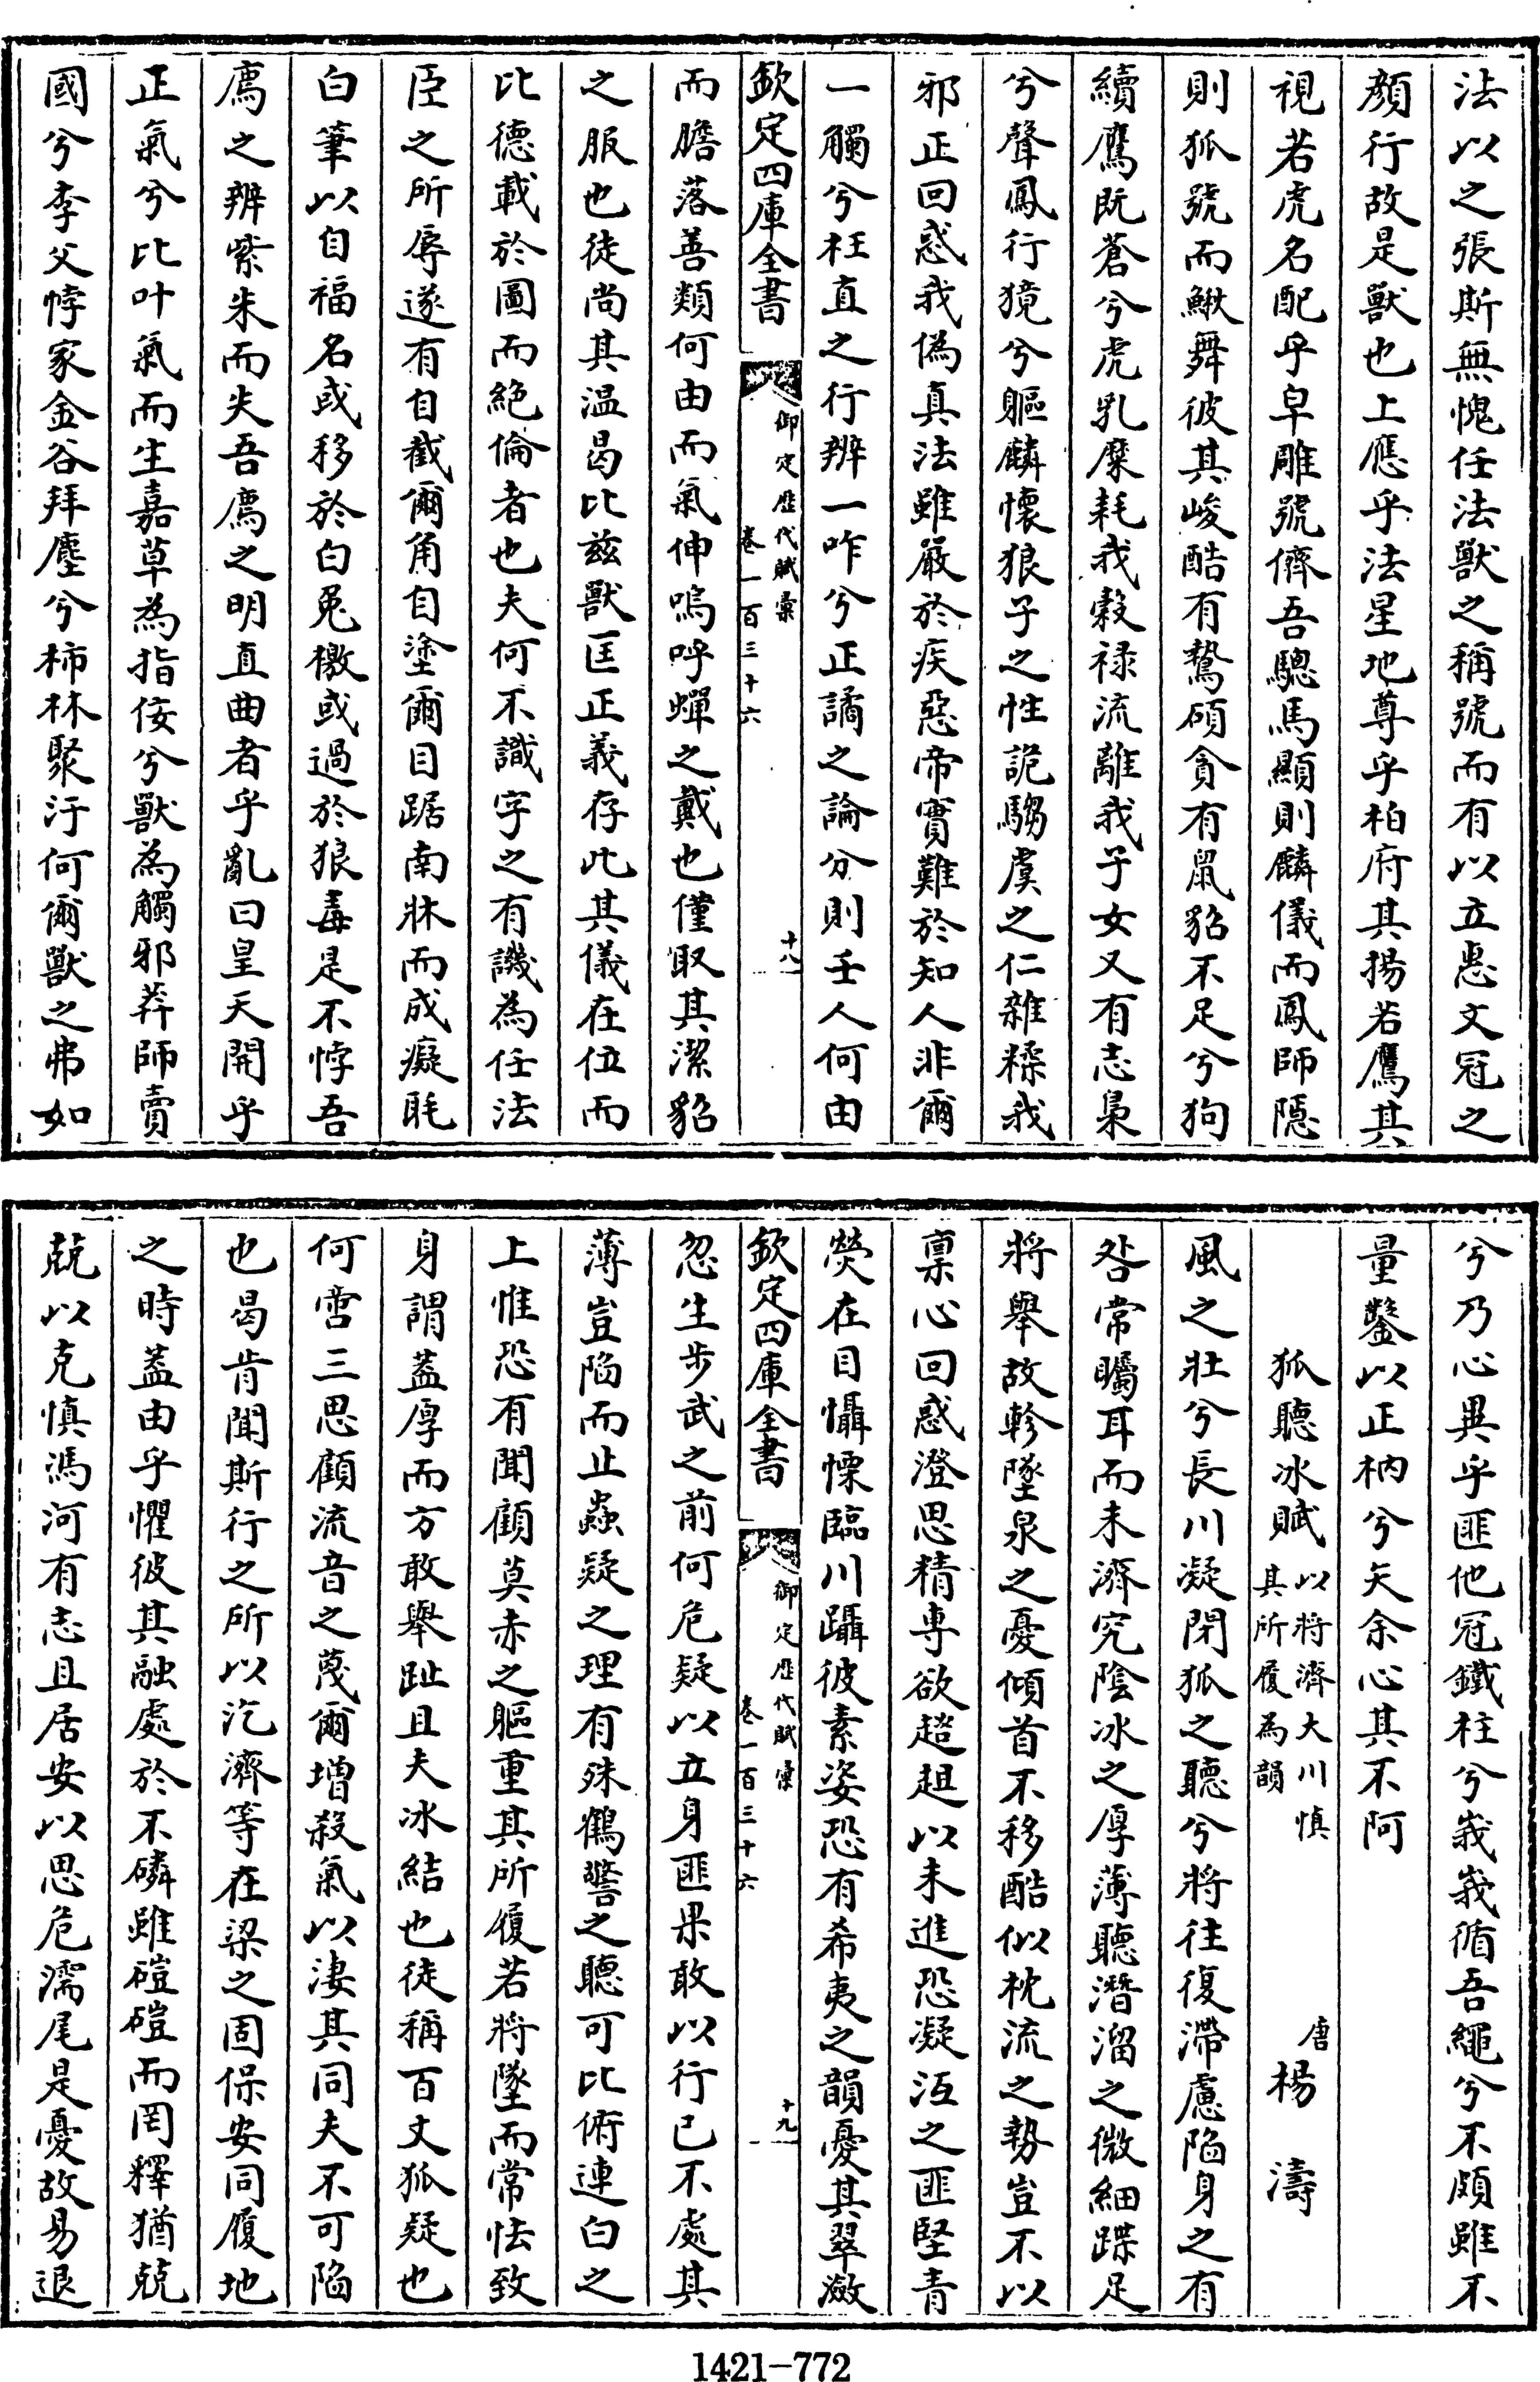 法以之張斯無愧任法獸之稱號而有以立惠文冠之
顔行故是獸也上應乎法星地尊乎柏府其揚若鷹其
視若虎名配乎皁雕號儕吾驄馬顯則麟儀而鳳師隱
則狐號而鰍舞彼其峻酷有鷙碩貪有鼠貂不足兮狗
續鷹既蒼兮虎乳糜耗我榖禄流離我子女又有志梟
兮聲鳳行獍兮軀麟懷狼子之性詭騶虞之仁雜糅我
邪正回惑我偽真法雖嚴於疾惡帝實難於知人非爾
一觸兮枉直之行辨一咋兮正譎之論分則壬人何由
欽定四庫全書
御定歴代賦彙
卷一百三十六
十八
而膽落善類何由而氣伸嗚呼蟬之戴也僅取其潔貂
之服也徒尚其温曷比兹獸匡正義存此其儀在位而
比德載於圖而絶倫者也夫何不識字之有譏為任法
臣之所辱遂有自截爾角自塗爾目踞南牀而成癡眊
白筆以自福名或移於白兎檄或過於狼毒是不悖吾
廌之辨紫朱而失吾廌之明直曲者乎亂曰皇天開乎
正氣兮比叶氣而生嘉草為指佞兮獸為觸邪莽師賣
國兮李父悖家金谷拜塵兮柿林聚汙何爾獸之弗如
兮乃心異乎匪他冠鐵柱兮峩峩循吾繩兮不頗雖不
量鑿以正枘兮矢余心其不阿
狐聽冰賦以將濟大川慎其所履為韻 唐楊濤
風之壯兮長川凝閉狐之聽兮將往復滯慮陷身之有
咎常矚耳而未濟究陰冰之厚薄聽潛溜之微細蹀足
將舉故軫墜泉之憂傾首不移酷似枕流之勢豈不以
禀心回惑澄思精專欲趦趄以未進恐凝沍之匪堅青
熒在目懾慄臨川躡彼素姿恐有希夷之韻憂其翠瀲
欽定四庫全書
御定歴代賦彙
卷一百三十六
十九
忽生步武之前何危疑以立身匪果敢以行已不處其
薄豈陷而止蟲疑之理有殊鶴警之聽可比俯連白之
上惟恐有聞顧莫赤之軀重其所履若將墜而常怯致
身謂蓋厚而方敢舉趾且夫冰結也徒稱百丈狐疑也
何啻三思顧流音之蔑爾增殺氣以淒其同夫不可陷
也曷肯聞斯行之所以汔濟等在梁之固保安同履地
之時葢由乎懼彼其融處於不磷雖磑磑而罔釋猶兢
兢以克慎馮河有志且居安以思危濡尾是憂故易退
1421-772